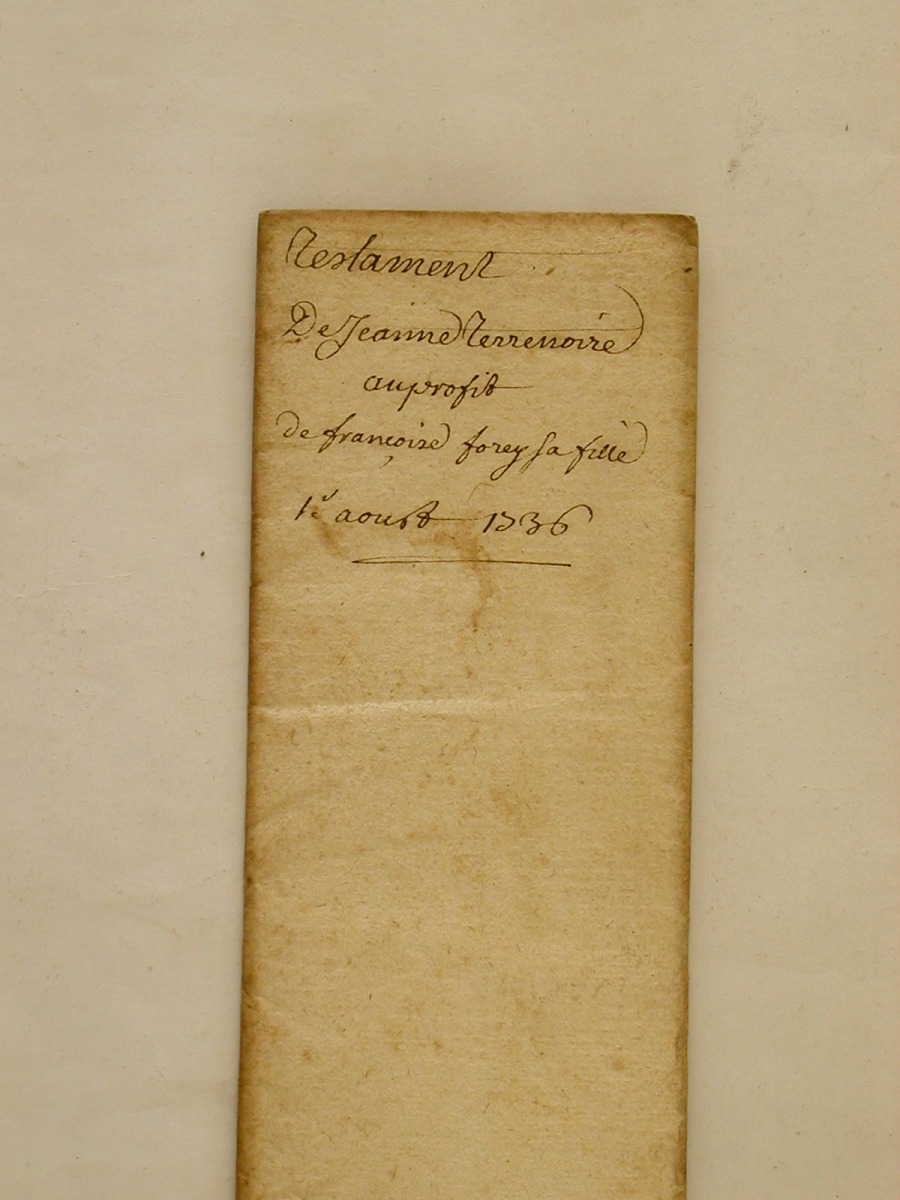 Testament
De Jeanne Terrenoire
au profit
de françoise forey sa fille
1.r aoust 1736